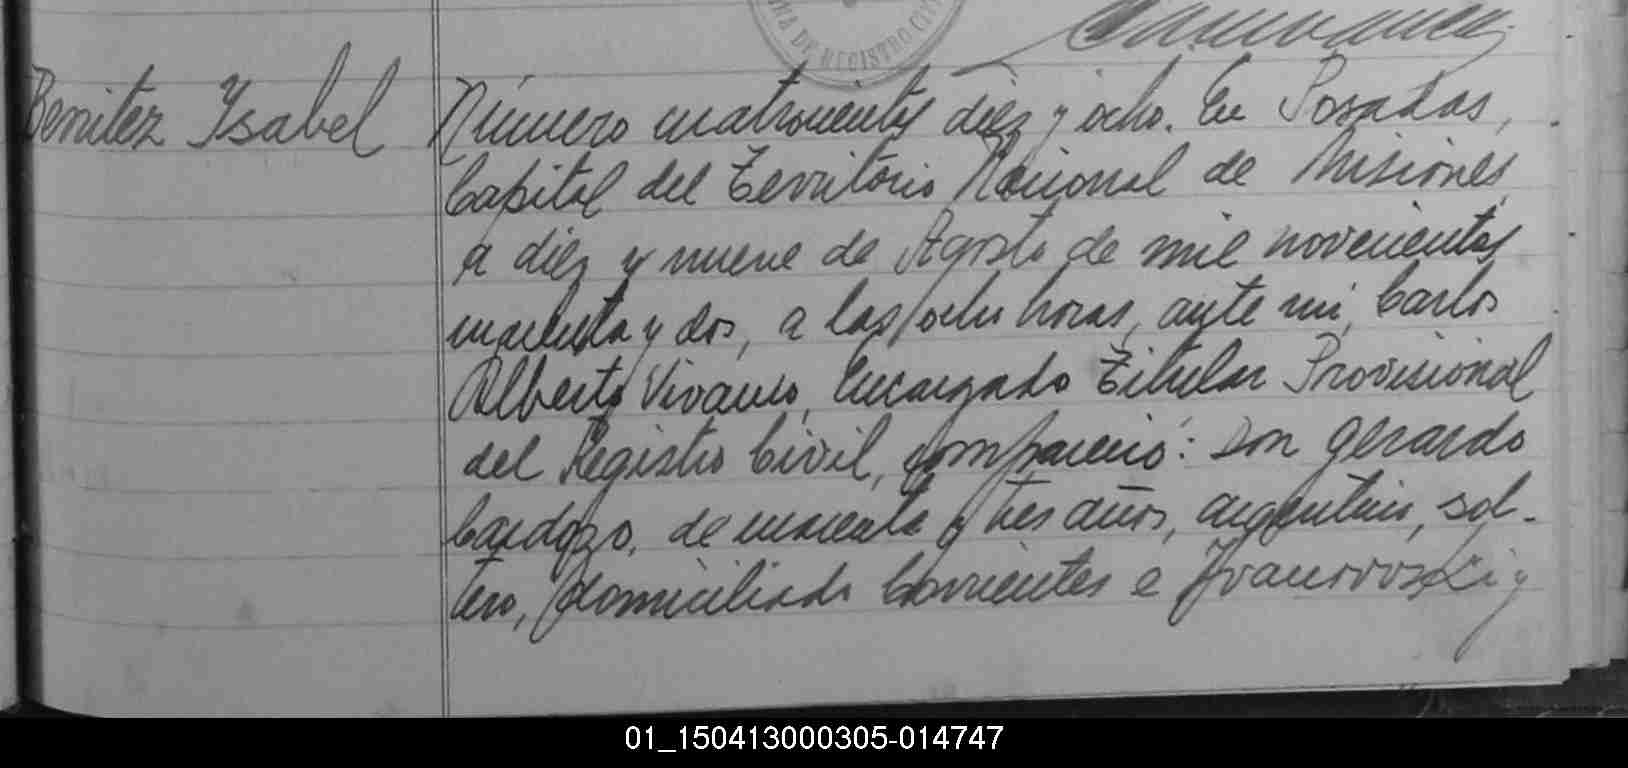 DE REGISTRO CIVIL
Benitez Ysabel
Número cuatrocientos diez y ocho. En Posadas,
Capital del Territorio Nacional de Misiones,
a diez y nueve de Agosto de mil novecientos
cuarenta y dos, a las ocho horas, ante mi, Carlos
Alberto Vivanco, Encargado Titular Provisional
del Registro Civil, compareció: Don Gerardo
Cardozo, de cuarenta y tres años, argentino, sol-
tero, domiciliado Corrientes e Ivanovski y
01_150413000305-014747